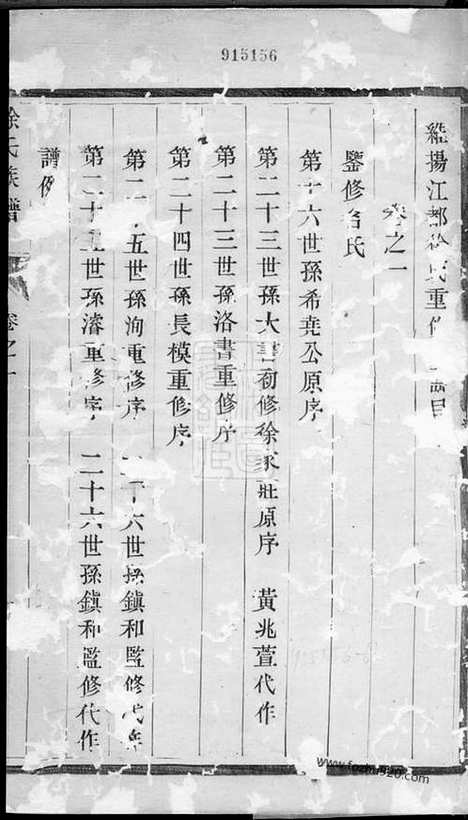 915156
維揚江都徐氏重修 譜目
卷之一
鑒修名氏
第十六世孫希堯公原序
第二十三世孫大 創修徐家莊原序 黃兆萱代作
第二十三世孫洛書重修序
第二十四世孫長模重修序
第二十五世孫洵重修序 二十六世孫鎮和監修代作
第二十五世孫濬重修序 二十六世孫鎮和監修代作
譜例
徐氏族譜 卷之一
www.fozhu920.com